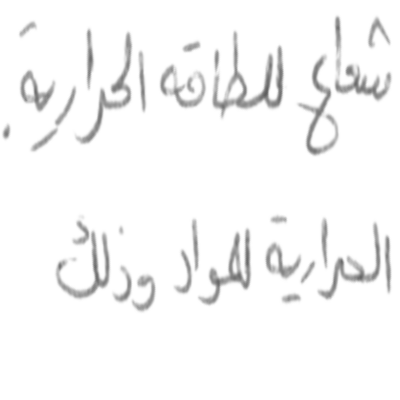 شعاع للطاقة الحرارية.
الحرارية للمواد وذلك